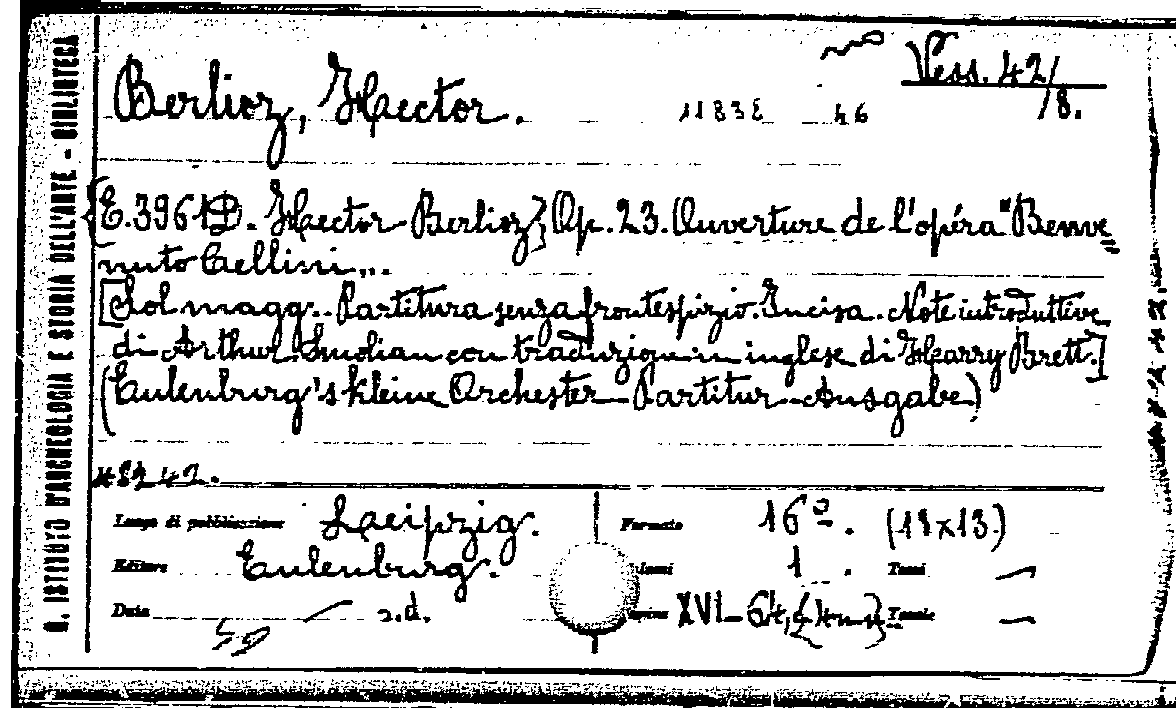 R. ISTITUTO D'ARCHEOLOGIA E STORIA DELL'ARTE - BIBLIOTECA
Vess. 42/
/8.
Berlioz, Hector. 11838 46
{E.3961 . Hector Berlioz} Op. 23. Ouverture de l'opéra "Benve=
nuto Cellini„..
[Sol magg.. Partitura senza frontespizio. Incisa. Note introduttive
di Arthur Smolian con traduzione in inglese di Harry Brett.]
(Eulenburg's kleine Orchester-Partitur-Ausgabe)
Luogo di pubblicazione Leipzig. Formato 16º. (19x13.)
Editore Eulenburg. Volumi 1. Tomi —
Data s.d. Pagine XVI-64, Tavole —